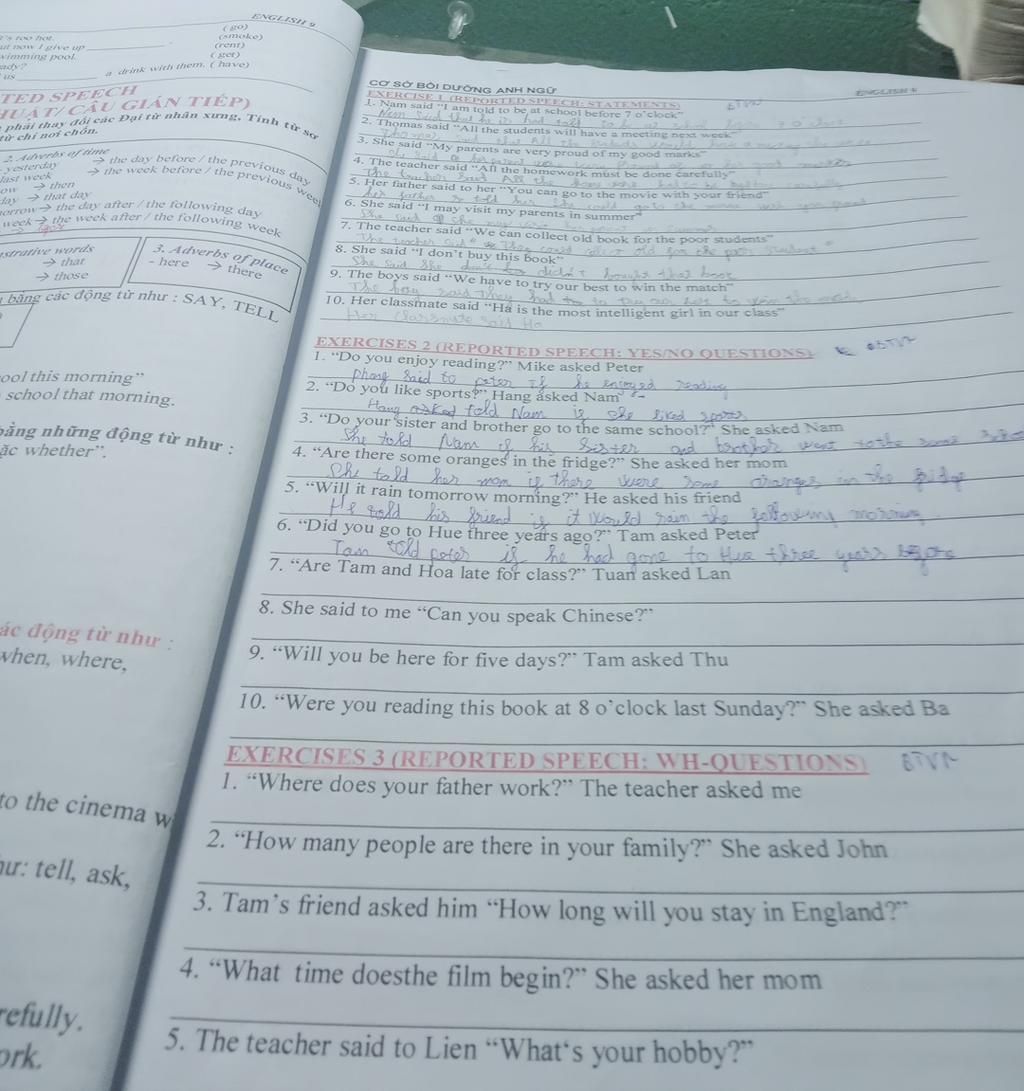 ENGLISH 9
t's too hot. ( go)
ut now I give up __________ . (smoke)
wimming pool. (rent)
ady? ( get)
us __________ a drink with them. ( have)
TED SPEECH
HUẬT/ CÂU GIÁN TIẾP)
phải thay đổi các Đại từ nhân xưng, Tính từ sơ
từ chỉ nơi chốn.
2. Adverbs of time
- yesterday → the day before / the previous day
last week → the week before / the previous week
ow → then
day → that day
orrow → the day after / the following day
week → the week after / the following week
strative words
→ that
→ those
3. Adverbs of place
- here → there
bằng các động từ như : SAY, TELL
ool this morning”
school that morning.
bằng những động từ như :
ặc whether”.
ác động từ như :
when, where,
to the cinema w
hư: tell, ask,
refully.
ork.
CƠ SỞ BỒI DƯỠNG ANH NGỮ ENGLISH 9
EXERCISE 1 (REPORTED SPEECH: STATEMENTS) BTVN
1. Nam said “I am told to be at school before 7 o’clock”
Nam said that he is had told to be at school
2. Thomas said “All the students will have a meeting next week”
Thomas said that All the would
3. She said “My parents are very proud of my good marks”
She said her parent were
4. The teacher said “All the homework must be done carefully”
The teacher said All the
5. Her father said to her “You can go to the movie with your friend”
her father told her she could
6. She said “I may visit my parents in summer”
She said she
7. The teacher said “We can collect old book for the poor students”
The teacher said They could collect old for the poor student
8. She said “I don’t buy this book”
She said She didn't bought that book
9. The boys said “We have to try our best to win the match”
The boy said They had to to try our
10. Her classmate said “Ha is the most intelligent girl in our class”
Her classmate said Ha
EXERCISES 2 (REPORTED SPEECH: YES/NO QUESTIONS) BTVN
1. “Do you enjoy reading?” Mike asked Peter
Phong said to peter if he enjoyed reading
2. “Do you like sports?” Hang asked Nam
Hang asked told Nam if she liked sports
3. “Do your sister and brother go to the same school?” She asked Nam
She told Nam if his sister and brother went to the same
4. “Are there some oranges in the fridge?” She asked her mom
She told her mom if there were some oranges in the fridge
5. “Will it rain tomorrow morning?” He asked his friend
He told his friend if it would rain the following morning
6. “Did you go to Hue three years ago?” Tam asked Peter
Tam told peter if he had gone to Hue three years before
7. “Are Tam and Hoa late for class?” Tuan asked Lan
8. She said to me “Can you speak Chinese?”
9. “Will you be here for five days?” Tam asked Thu
10. “Were you reading this book at 8 o’clock last Sunday?” She asked Ba
EXERCISES 3 (REPORTED SPEECH: WH-QUESTIONS) BTVN
1. “Where does your father work?” The teacher asked me
2. “How many people are there in your family?” She asked John
3. Tam’s friend asked him “How long will you stay in England?”
4. “What time doesthe film begin?” She asked her mom
5. The teacher said to Lien “What‘s your hobby?”